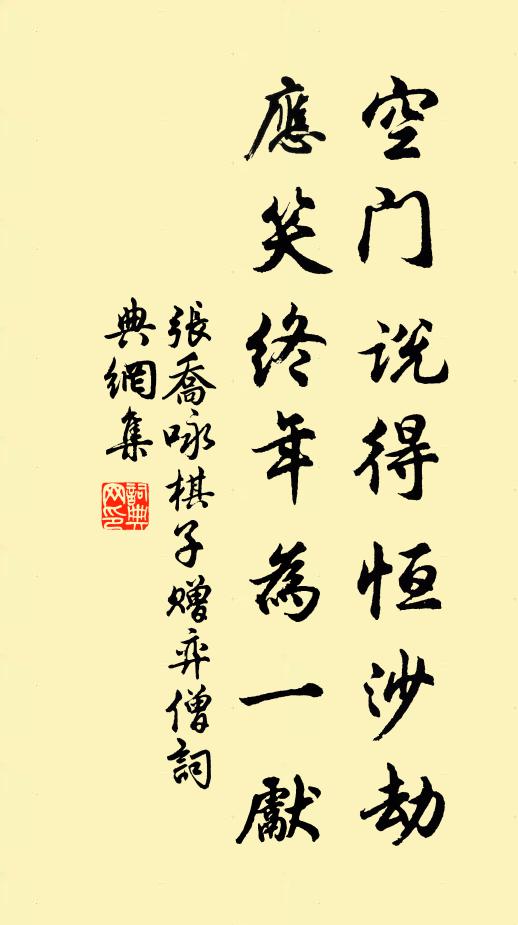 空门说得恒沙劫
應笑終年為一獻
張喬咏棋子贈弈僧詞
典網集
詞典
网印